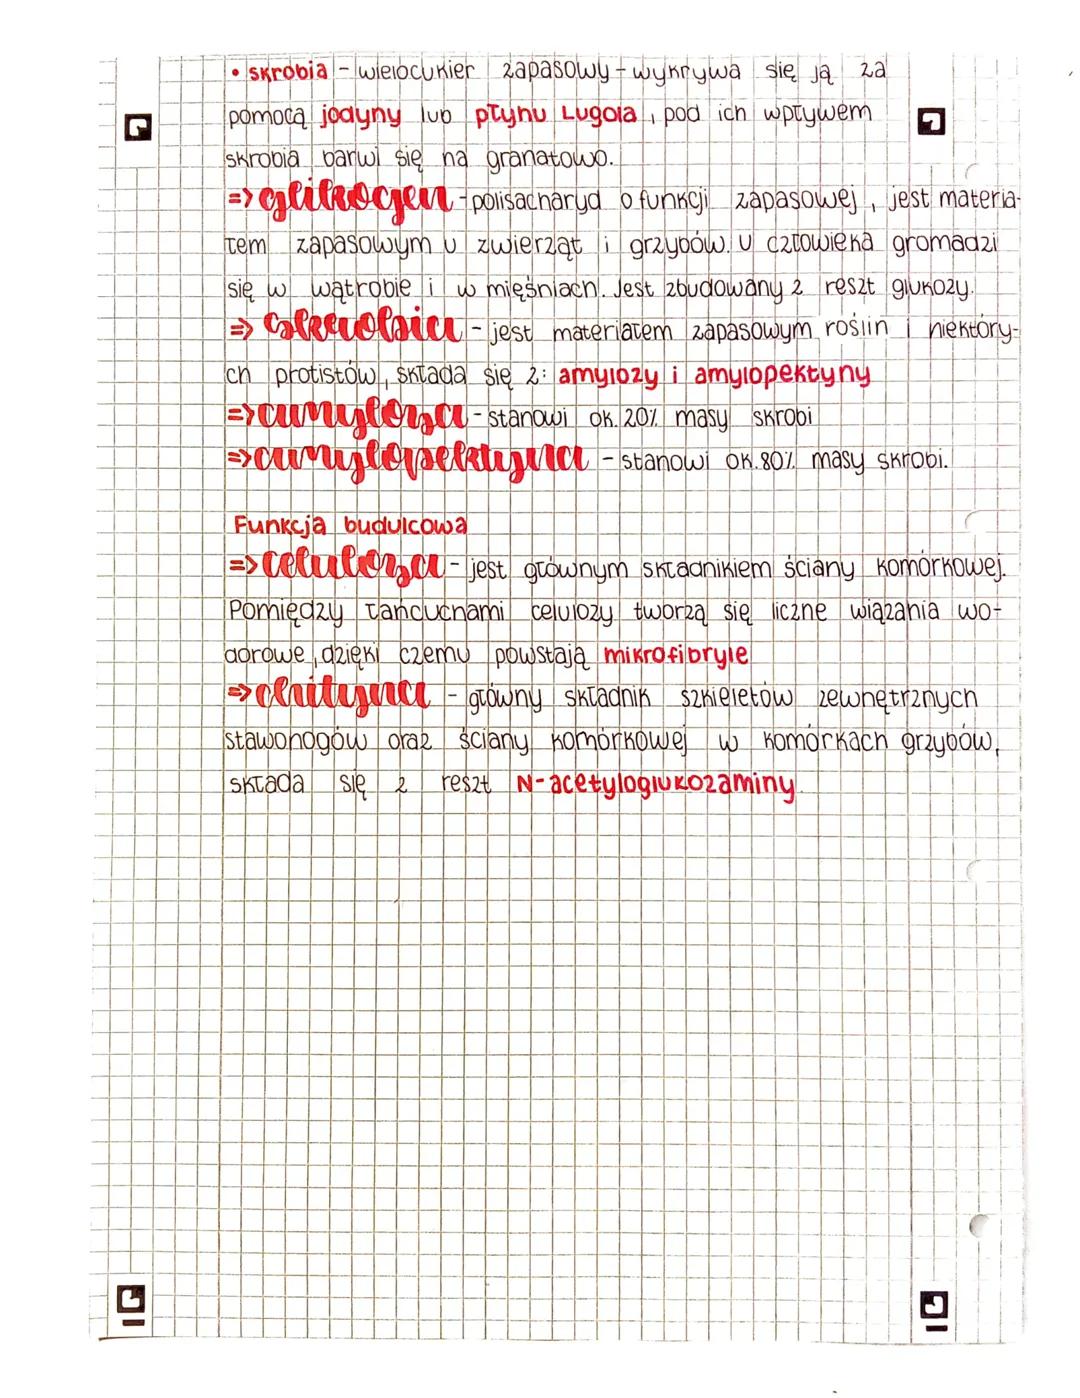 • skrobia - wielocukier zapasowy - wykrywa się ją za
pomocą jodyny lub płynu Lugola, pod ich wpływem
skrobia barwi się na granatowo.
=> glikogen - polisacharyd o funkcji zapasowej, jest materia-
łem zapasowym u zwierząt i grzybów. U człowieka gromadzi
się w wątrobie i w mięśniach. Jest zbudowany z reszt glukozy.
=> skrobia - jest materiałem zapasowym roślin i niektóry-
ch protistów, składa się z: amylozy i amylopektyny
=> amyloza - stanowi ok. 20% masy skrobi
=> amylopektyna - stanowi ok. 80% masy skrobi.
Funkcja budulcowa
=> celuloza - jest głównym składnikiem ściany komórkowej.
Pomiędzy łańcuchami celulozy tworzą się liczne wiązania wo-
dorowe, dzięki czemu powstają mikrofibryle
=> chityna - główny składnik szkieletów zewnętrznych
stawonogów oraz ściany komórkowej w komórkach grzybów,
składa się z reszt N-acetyloglukozaminy.